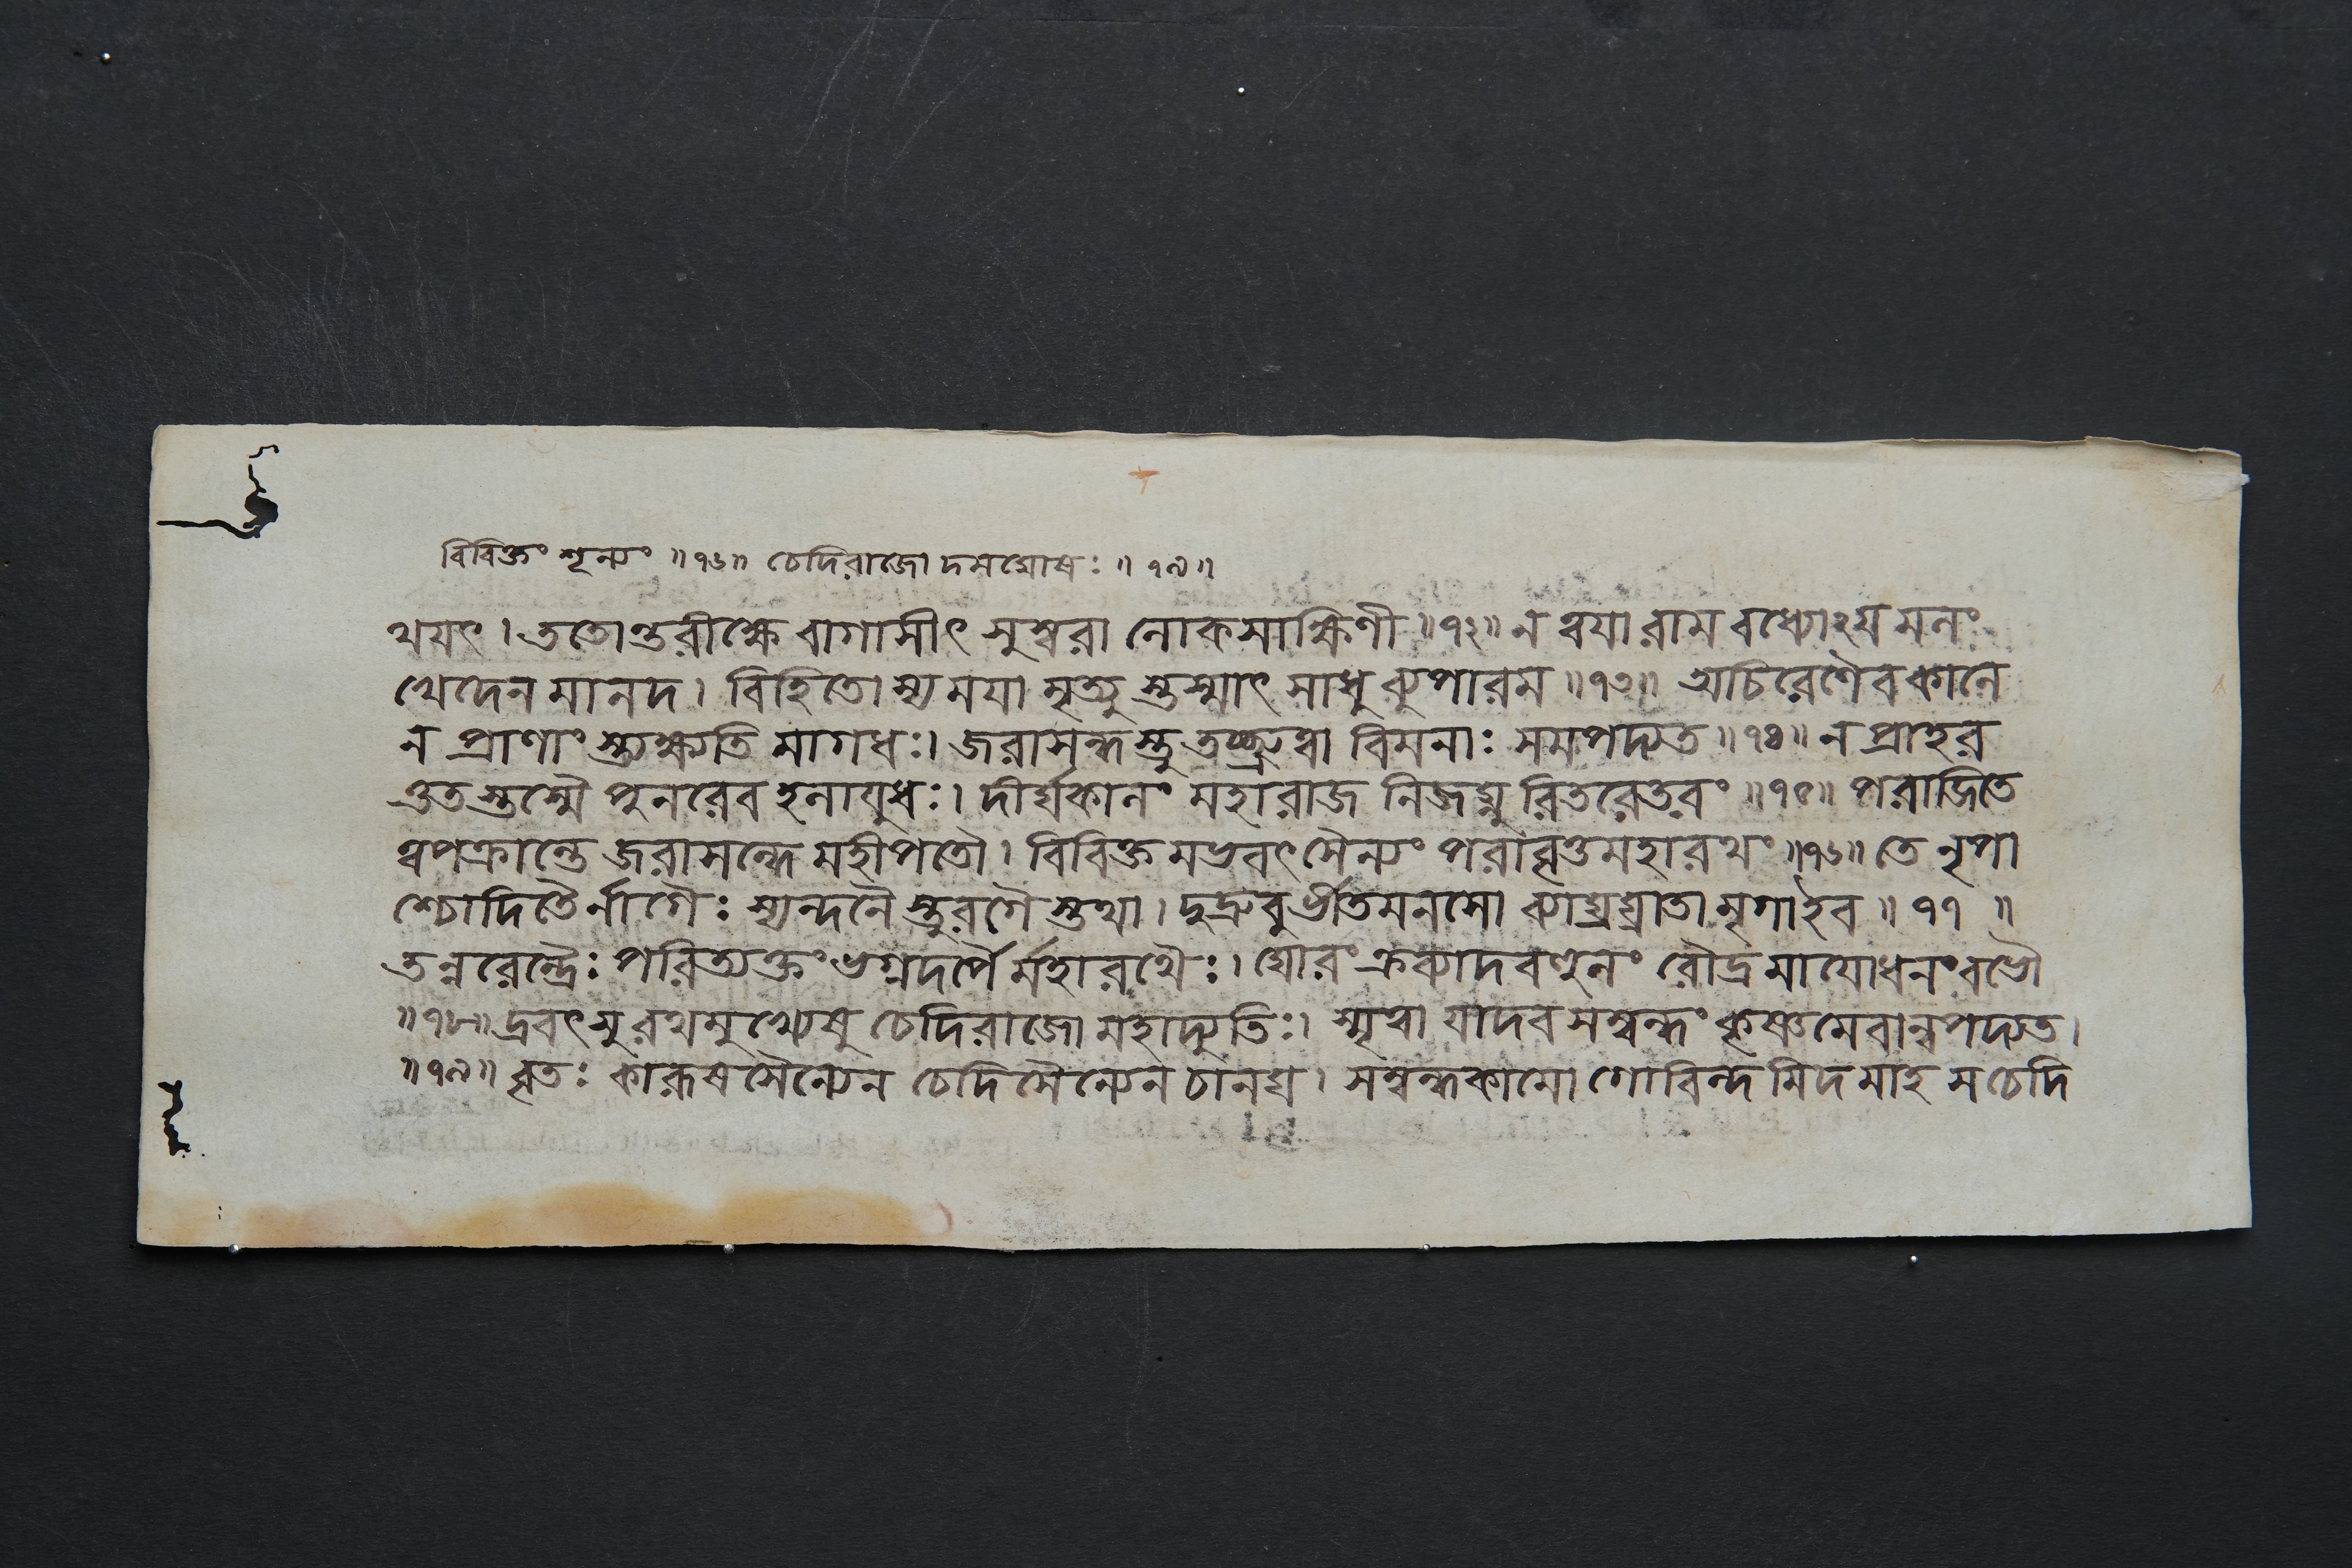 বিবিক্তং শূন্যং ॥১৬॥ চেদিরাজো দমঘোষঃ ॥ ১৯ ॥
থযৎ । ততোন্তরীক্ষে বাগাসীৎ সুস্বরা লোকসাক্ষিণী ॥১২॥ ন ত্বযা রাম বধ্যোঽয মলং
খেদেন মানদ । বিহিতো স্য ময়া মৃত্যু স্তস্মাৎ সাধু ব্যুপারম ॥১৩॥ অচিরেণৈব কালে
ন প্রাণাং স্ত্যক্ষ্যতি মাগধঃ। জরাসন্ধস্তু তচ্ছ্রুত্বা বিমনাঃ সমপদ্যত ॥১৪॥ ন প্রাহর
ত্তত স্তস্মৈ পুনরেব হলাযুধঃ। দীর্ঘকালং মহারাজ নিজঘ্নু রিতরেতরং ॥১৫॥ পরাজিতে
ত্বপক্রান্তে জরাসন্ধে মহীপতৌ। বিবিক্ত মভবৎ সৈন্যং পরাবৃত্তমহারথং ॥১৬॥ তে নৃপা
শ্চোদিতৈর্নাগৈঃ স্যন্দনৈ স্তুরগৈ স্তথা। দুদ্রুবু র্ভীতমনসো ব্যাঘ্রঘ্রাতা মৃগাইব ॥ ১৭ ॥
তন্নরেন্দ্রৈঃ পরিত্যক্তং ভগ্নদর্পৈ র্মহারথৈঃ। ঘোরং ক্রব্যাদবহুলং রৌদ্রমাযোধনং বভৌ
॥১৮॥ দ্রবৎসু রথমুখ্যেষু চেদিরাজো মহাদ্যুতিঃ। স্মৃত্বা যাদব সম্বন্ধং কৃষ্ণমেবান্বপদ্যত।
॥১৯॥ বৃতঃ কারূষসৈন্যেন চেদিসৈন্যেন চানঘ । সম্বন্ধকামো গোবিন্দ মিদমাহ স চেদি